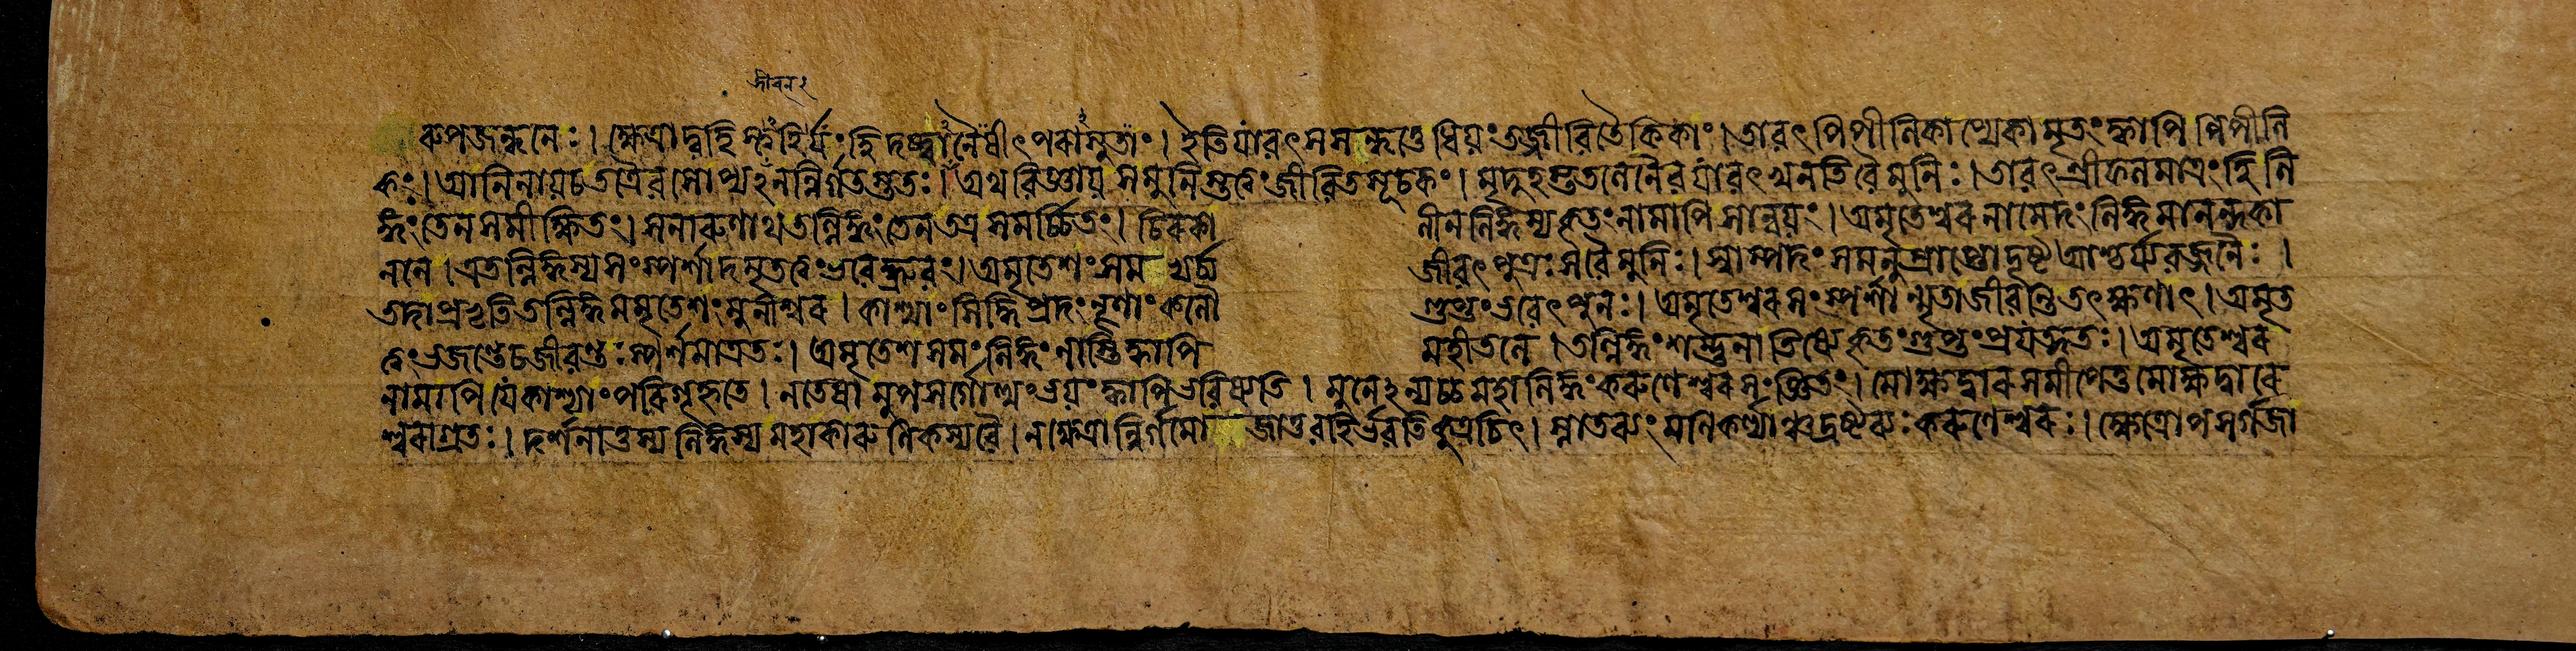 জীবন২
ৰুপজঙ্ঘনেঃ। ক্ষেত্রাদ্বহি হি দষ্ট্বা নৈষীৎ পৰাসুতাং। ইতি যাবৎ স সন্ধত্তে ধিয়ং তজ্জীবিতৈকিকাং। তাবৎ পিপীলিকাত্যেকা মৃতং ক্বাপি পিপীলি
কং। আনিনায় চ তত্রৈব সোপ্যঽনন্নির্গতস্ততঃ। অথ বিজ্ঞায় স মুনিস্তত্ত্বং জীবিতসূচকং। মৃদুহস্ততলেনৈব যাবৎ খনতি বৈ মুনিঃ। তাবৎ শ্রীফলমাত্রং হি লি
ঙ্গং তেন সমীক্ষিতং। সনাৰুণাথ তল্লিঙ্গং তেন তত্র সমর্চ্চিতং। চিৰকালীনলিঙ্গস্য কৃতং নামাপি সান্বয়ং। অমৃতেশ্বৰনামেদং লিঙ্গমানন্দকা
ননে। এতল্লিঙ্গস্য সংস্পর্শাদমৃতত্বং ভবেদ্ধ্রুবং। অমৃতেশং সমভ্যর্চ্য জীবৎপুত্রঃ স বৈ মুনিঃ। স্বাস্পদং সমনুপ্রাপ্তো দৃষ্ট আশ্চর্য্যবজ্জনৈঃ।
তদাপ্রভৃতি তল্লিঙ্গমমৃতেশং মুনীশ্বৰ। কাশ্যাং সিদ্ধিপ্রদং নৃণাং কলৌ গুপ্তং ভবেৎ পুনঃ। অমৃতেশ্বৰসংস্পর্শান্মৃতা জীবন্তি তৎক্ষণাৎ। অমৃত
ত্বং ভজন্তে চ জীবন্তঃ স্পর্শমাত্রতঃ। অমৃতেশসমং লিঙ্গং নাস্তি ক্বাপি মহীতলে। তল্লিঙ্গং শম্ভুনা তিষ্যে কৃতং গুপ্তং প্রযত্নতঃ। অমৃতেশ্বৰ
নামাপি যে কাশ্যাং পৰিগৃহ্ণতে। ন তেষামুপসর্গোত্থং ভয়ং ক্বাপি ভবিষ্যতি। মুনেঽন্যচ্চ মহালিঙ্গং কৰুণেশ্বৰসংজ্ঞিতং। মোক্ষদ্বাৰসমীপে তু মোক্ষদ্বাৰে
শ্বৰাগ্রতঃ। দর্শনাত্তস্য লিঙ্গস্য মহাকাৰুণিকস্য বৈ। ন ক্ষেত্রান্নির্গমো জাতু বহির্ভবতি কুত্রচিৎ। স্নাতব্যং মণিকর্ণ্যাঞ্চ দ্রষ্টব্যঃ কৰুণেশ্বৰঃ। ক্ষেত্রোপসর্গজা